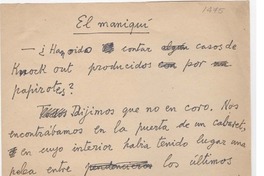 El maniquí
— ¿Han oído contar casos de
Knock out producidos por
papirotes?
Dijimos que no en coro. Nos
encontrábamos en la puerta de un cabaret,
en cuyo interior había tenido lugar una
pelea entre los últimos